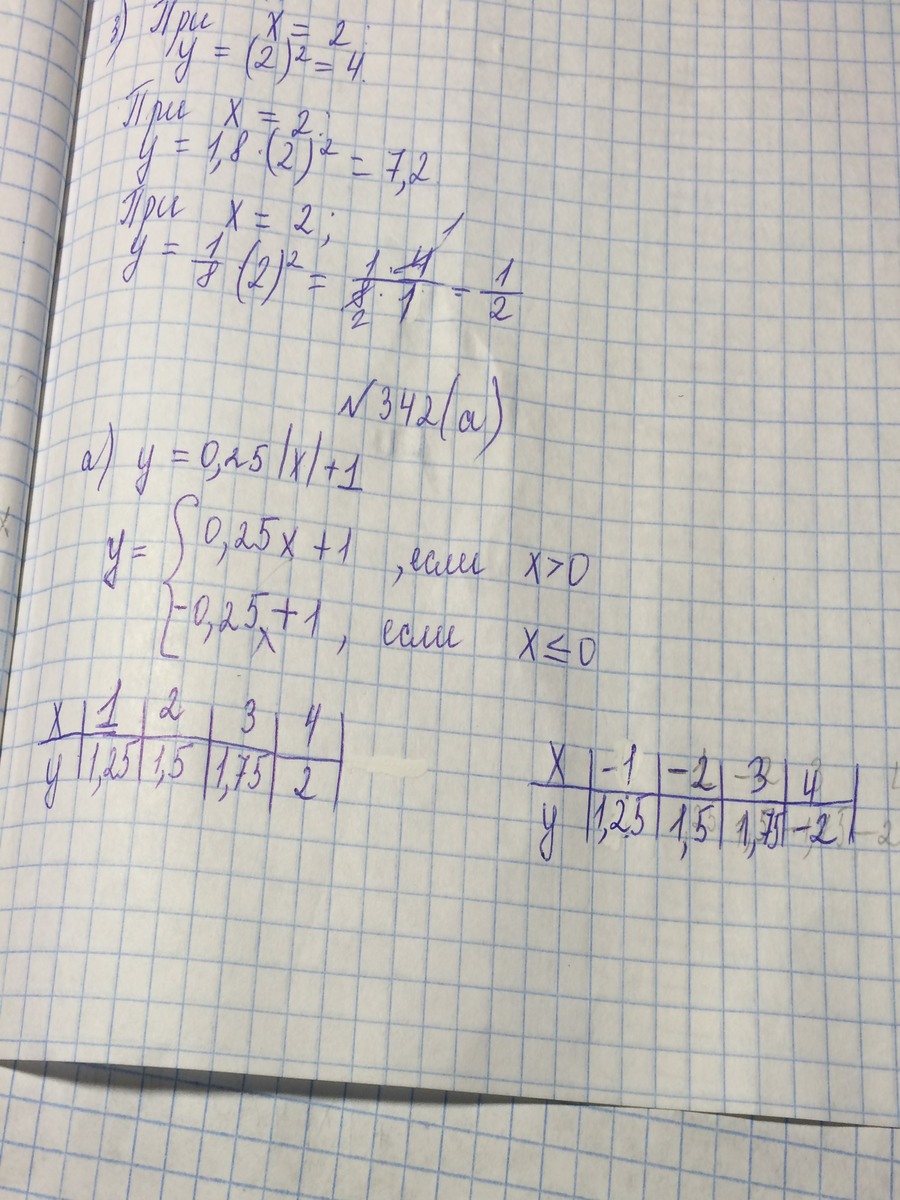 3) При x = 2;
y = (2)² = 4.
При x = 2:
y = 1,8 · (2)² = 7,2
При x = 2;
y = 1/8 · (2)² = 1·4/8·1 = 1/2
1
2
№342(а)
а) y = 0,25|x|+1
y = { 0,25x + 1 , если x>0
-0,25x + 1 , если x ≤ 0
x | 1 | 2 | 3 | 4 |
y | 1,25 | 1,5 | 1,75 | 2 |
x | -1 | -2 | -3 | 4 |
y | 1,25 | 1,5 | 1,75 | -2 | -2